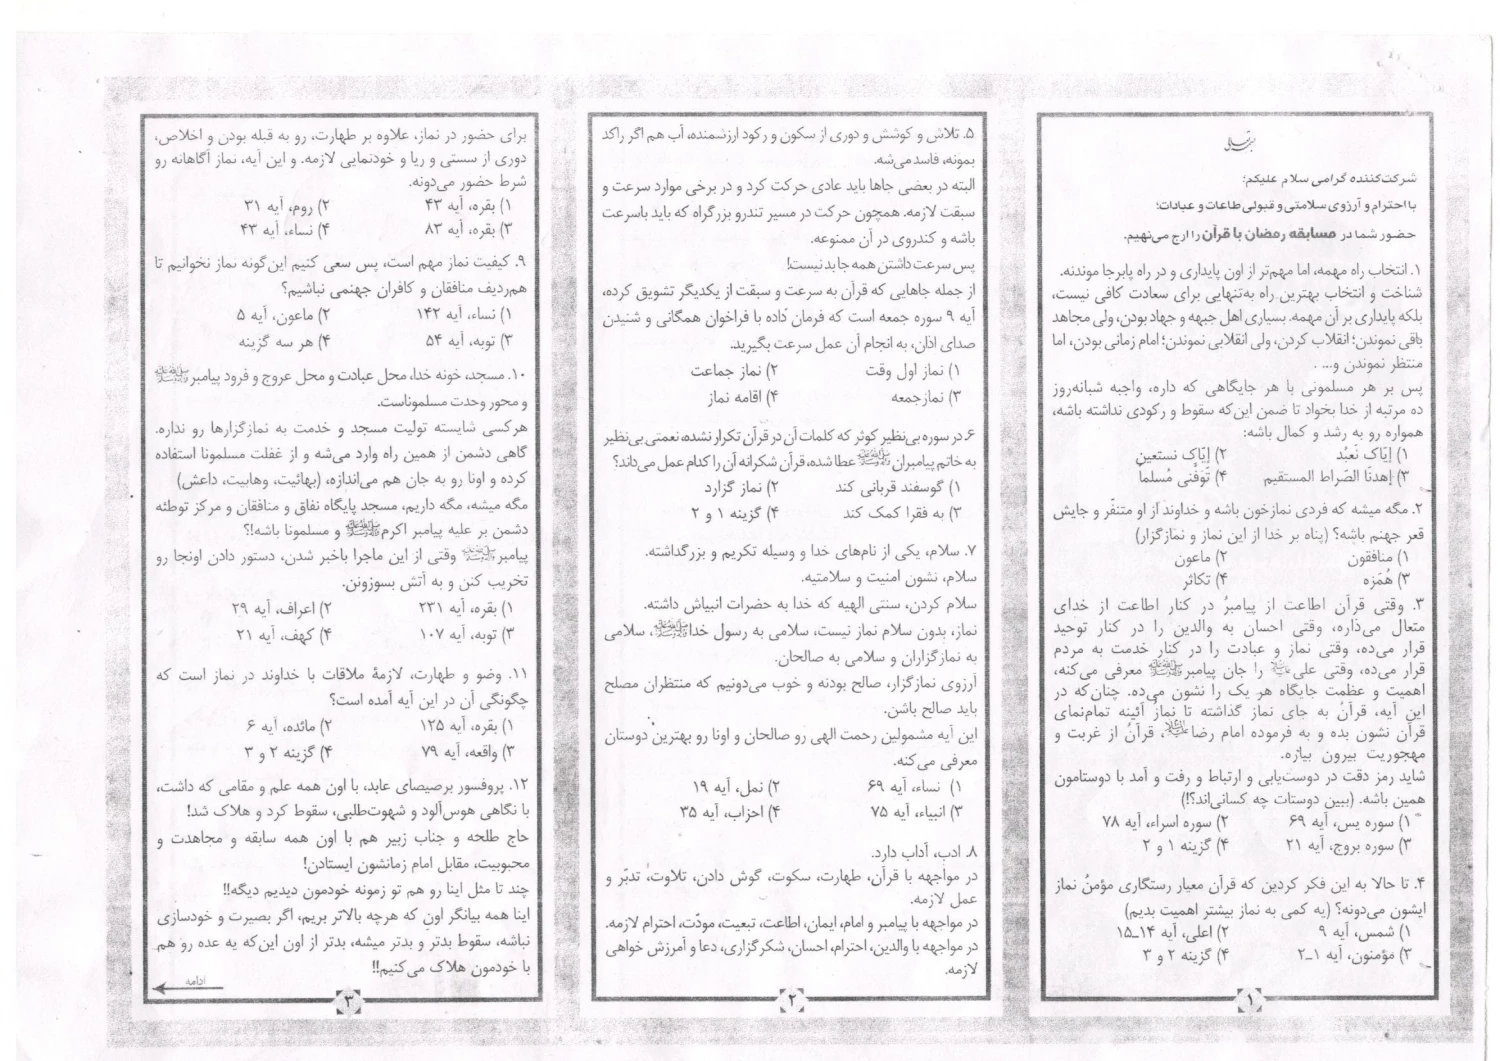 بسمه تعالی
شرکت‌کننده گرامی سلام علیکم؛
با احترام و آرزوی سلامتی و قبولی طاعات و عبادات؛
حضور شما در مسابقه رمضان با قرآن را ارج می‌نهیم.
۱. انتخاب راه مهمه، اما مهم‌تر از اون پایداری و در راه پابرجا موندنه.
شناخت و انتخاب بهترین راه به‌تنهایی برای سعادت کافی نیست،
بلکه پایداری بر آن مهمه. بسیاری اهل جبهه و جهاد بودن، ولی مجاهد
باقی نموندن؛ انقلاب کردن، ولی انقلابی نموندن؛ امام زمانی بودن، اما
منتظر نموندن و... .
پس بر هر مسلمونی با هر جایگاهی که داره، واجبه شبانه‌روز
ده مرتبه از خدا بخواد تا ضمن این‌که سقوط و رکودی نداشته باشه،
همواره رو به رشد و کمال باشه:
۱) إیّاک نَعبُد ۲) إیّاک نستعین
۳) إهدنَا الصّراط المستقیم ۴) تَوَفّنی مُسلما
۲. مگه میشه که فردی نمازخون باشه و خداوند از او متنفّر و جایش
قعر جهنم باشه؟ (پناه بر خدا از این نماز و نمازگزار)
۱) منافقون ۲) ماعون
۳) هُمَزه ۴) تکاثر
۳. وقتی قرآن اطاعت از پیامبرُ در کنار اطاعت از خدای
متعال می‌ذاره، وقتی احسان به والدین را در کنار توحید
قرار می‌ده، وقتی نماز و عبادت را در کنار خدمت به مردم
قرار می‌ده، وقتی علی علیه‌السلام را جان پیامبر ﷺ معرفی می‌کنه،
اهمیت و عظمت جایگاه هر یک را نشون می‌ده. چنان‌که در
این آیه، قرآنُ به جای نماز گذاشته تا نمازُ آئینه تمام‌نمای
قرآن نشون بده و به فرموده امام رضا علیه‌السلام، قرآنُ از غربت و
مهجوریت بیرون بیاره.
شاید رمز دقت در دوست‌یابی و ارتباط و رفت و آمد با دوستامون
همین باشه. (ببین دوستات چه کسانی‌اند؟!)
۱) سوره یس، آیه ۶۹ ۲) سوره اسراء، آیه ۷۸
۳) سوره بروج، آیه ۲۱ ۴) گزینه ۱ و ۲
۴. تا حالا به این فکر کردین که قرآن معیار رستگاری مؤمنُ نماز
ایشون می‌دونه؟ (یه کمی به نماز بیشتر اهمیت بدیم)
۱) شمس، آیه ۹ ۲) اعلی، آیه ۱۴ـ۱۵
۳) مؤمنون، آیه ۱ـ۲ ۴) گزینه ۲ و ۳
۱
۵. تلاش و کوشش و دوری از سکون و رکود ارزشمنده، آب هم اگر راکد
بمونه، فاسد می‌شه.
البته در بعضی جاها باید عادی حرکت کرد و در برخی موارد سرعت و
سبقت لازمه. همچون حرکت در مسیر تندرو بزرگراه که باید باسرعت
باشه و کندروی در آن ممنوعه.
پس سرعت داشتن همه جا بد نیست!
از جمله جاهایی که قرآن به سرعت و سبقت از یکدیگر تشویق کرده،
آیه ۹ سوره جمعه است که فرمان داده با فراخوان همگانی و شنیدن
صدای اذان، به انجام آن عمل سرعت بگیرید.
۱) نماز اول وقت ۲) نماز جماعت
۳) نمازجمعه ۴) اقامه نماز
۶. در سوره بی‌نظیر کوثر که کلمات آن در قرآن تکرار نشده، نعمتی بی‌نظیر
به خاتم پیامبران ﷺ عطا شده، قرآن شکرانه آن را کدام عمل می‌داند؟
۱) گوسفند قربانی کند ۲) نماز گزارد
۳) به فقرا کمک کند ۴) گزینه ۱ و ۲
۷. سلام، یکی از نام‌های خدا و وسیله تکریم و بزرگداشته.
سلام، نشون امنیت و سلامتیه.
سلام کردن، سنتی الهیه که خدا به حضرات انبیاش داشته.
نماز، بدون سلام نماز نیست، سلامی به رسول خدا ﷺ، سلامی
به نمازگزاران و سلامی به صالحان.
آرزوی نمازگزار، صالح بودنه و خوب می‌دونیم که منتظران مصلح
باید صالح باشن.
این آیه مشمولین رحمت الهی رو صالحان و اونا رو بهترین دوستان
معرفی می‌کنه.
۱) نساء، آیه ۶۹ ۲) نمل، آیه ۱۹
۳) انبیاء، آیه ۷۵ ۴) احزاب، آیه ۳۵
۸. ادب، آداب دارد.
در مواجهه با قرآن، طهارت، سکوت، گوش دادن، تلاوت، تدبّر و
عمل لازمه.
در مواجهه با پیامبر و امام، ایمان، اطاعت، تبعیت، مودّت، احترام لازمه.
در مواجهه با والدین، احترام، احسان، شکرگزاری، دعا و آمرزش خواهی
لازمه.
۲
برای حضور در نماز، علاوه بر طهارت، رو به قبله بودن و اخلاص،
دوری از سستی و ریا و خودنمایی لازمه. و این آیه، نماز آگاهانه رو
شرط حضور می‌دونه.
۱) بقره، آیه ۴۳ ۲) روم، آیه ۳۱
۳) بقره، آیه ۸۳ ۴) نساء، آیه ۴۳
۹. کیفیت نماز مهم است، پس سعی کنیم این‌گونه نماز نخوانیم تا
هم‌ردیف منافقان و کافران جهنمی نباشیم؟
۱) نساء، آیه ۱۴۲ ۲) ماعون، آیه ۵
۳) توبه، آیه ۵۴ ۴) هر سه گزینه
۱۰. مسجد، خونه خدا، محل عبادت و محل عروج و فرود پیامبر ﷺ
و محور وحدت مسلموناست.
هرکسی شایسته تولیت مسجد و خدمت به نمازگزارها رو نداره.
گاهی دشمن از همین راه وارد می‌شه و از غفلت مسلمونا استفاده
کرده و اونا رو به جان هم می‌اندازه، (بهائیت، وهابیت، داعش)
مگه میشه، مگه داریم، مسجد پایگاه نفاق و منافقان و مرکز توطئه
دشمن بر علیه پیامبر اکرم ﷺ و مسلمونا باشه!؟
پیامبر ﷺ وقتی از این ماجرا باخبر شدن، دستور دادن اونجا رو
تخریب کنن و به آتش بسوزونن.
۱) بقره، آیه ۲۳۱ ۲) اعراف، آیه ۲۹
۳) توبه، آیه ۱۰۷ ۴) کهف، آیه ۲۱
۱۱. وضو و طهارت، لازمهٔ ملاقات با خداوند در نماز است که
چگونگی آن در این آیه آمده است؟
۱) بقره، آیه ۱۲۵ ۲) مائده، آیه ۶
۳) واقعه، آیه ۷۹ ۴) گزینه ۲ و ۳
۱۲. پروفسور برصیصای عابد، با اون همه علم و مقامی که داشت،
با نگاهی هوس‌آلود و شهوت‌طلبی، سقوط کرد و هلاک شد!
حاج طلحه و جناب زبیر هم با اون همه سابقه و مجاهدت و
محبوبیت، مقابل امام زمانشون ایستادن!
چند تا مثل اینا رو هم تو زمونه خودمون دیدیم دیگه!!
اینا همه بیانگر اونِ که هرچه بالاتر بریم، اگر بصیرت و خودسازی
نباشه، سقوط بدتر و بدتر میشه، بدتر از اون این‌که یه عده رو هم
با خودمون هلاک می‌کنیم!!
ادامه
۳